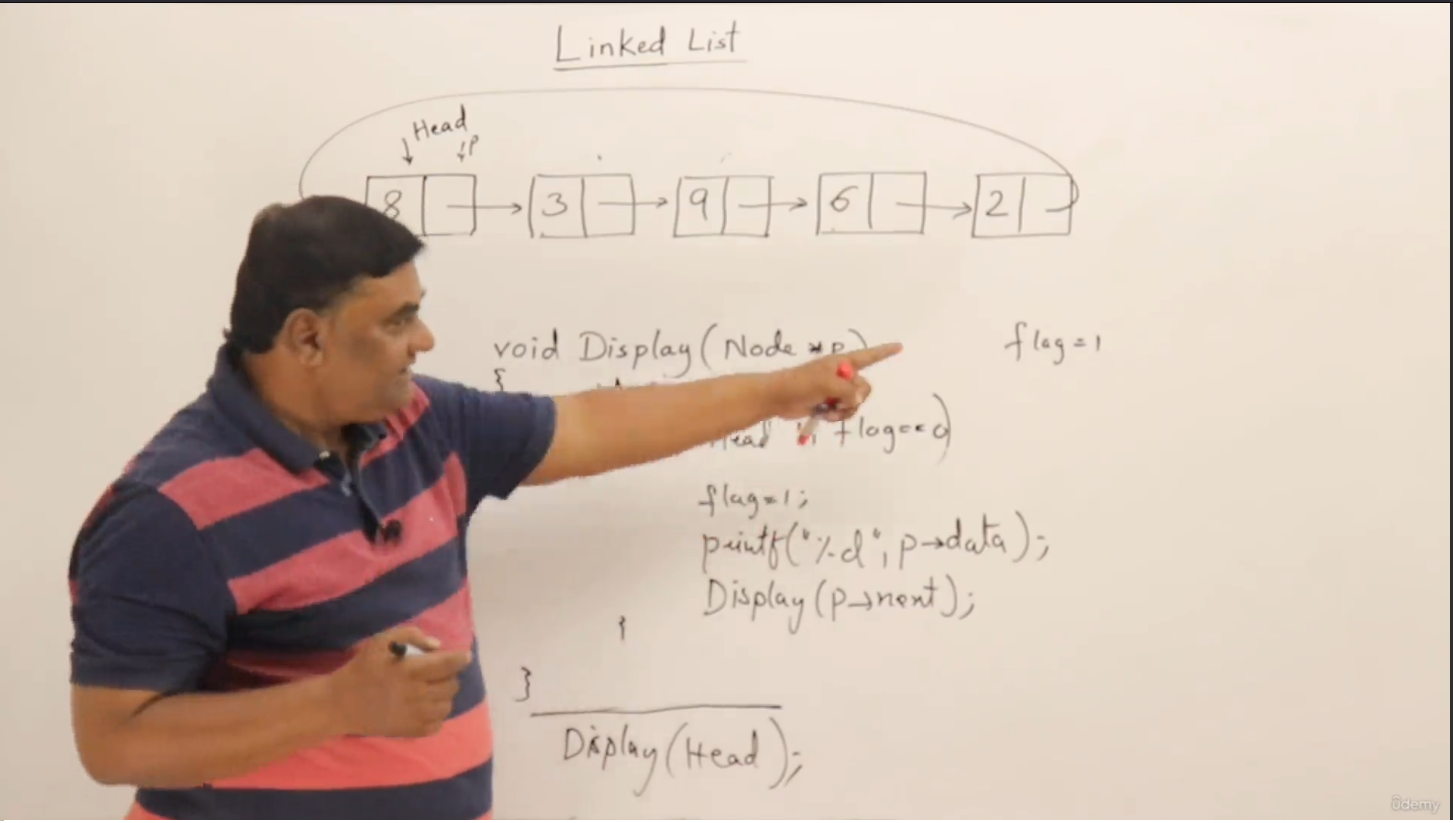 Linked List
Head
P
8 3 9 6 2
void Display(Node *P)
flag=1
{
Head || flag==0)
flag=1;
printf("%d", p→data);
Display(p→next);
}
}
Display(Head);
ûdemy